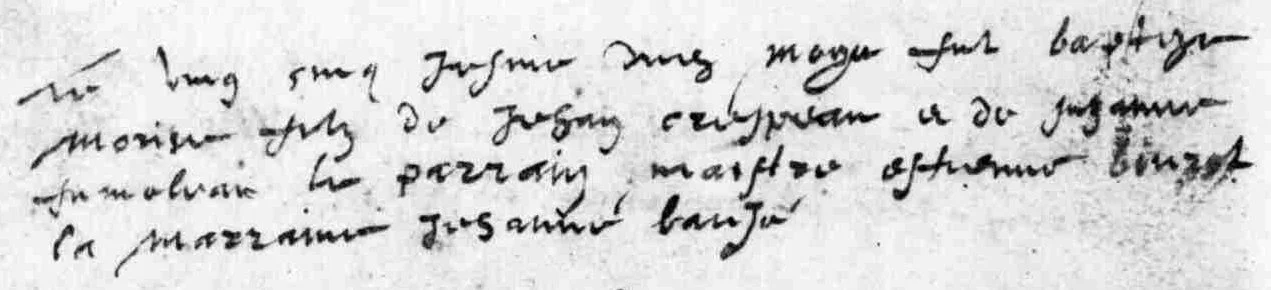 Le vingt cinq jesme dud moys fut baptize
morise filz de Jehan crespeau et de Jehanne
le parrain maistre estienne
la marraine Jehanne